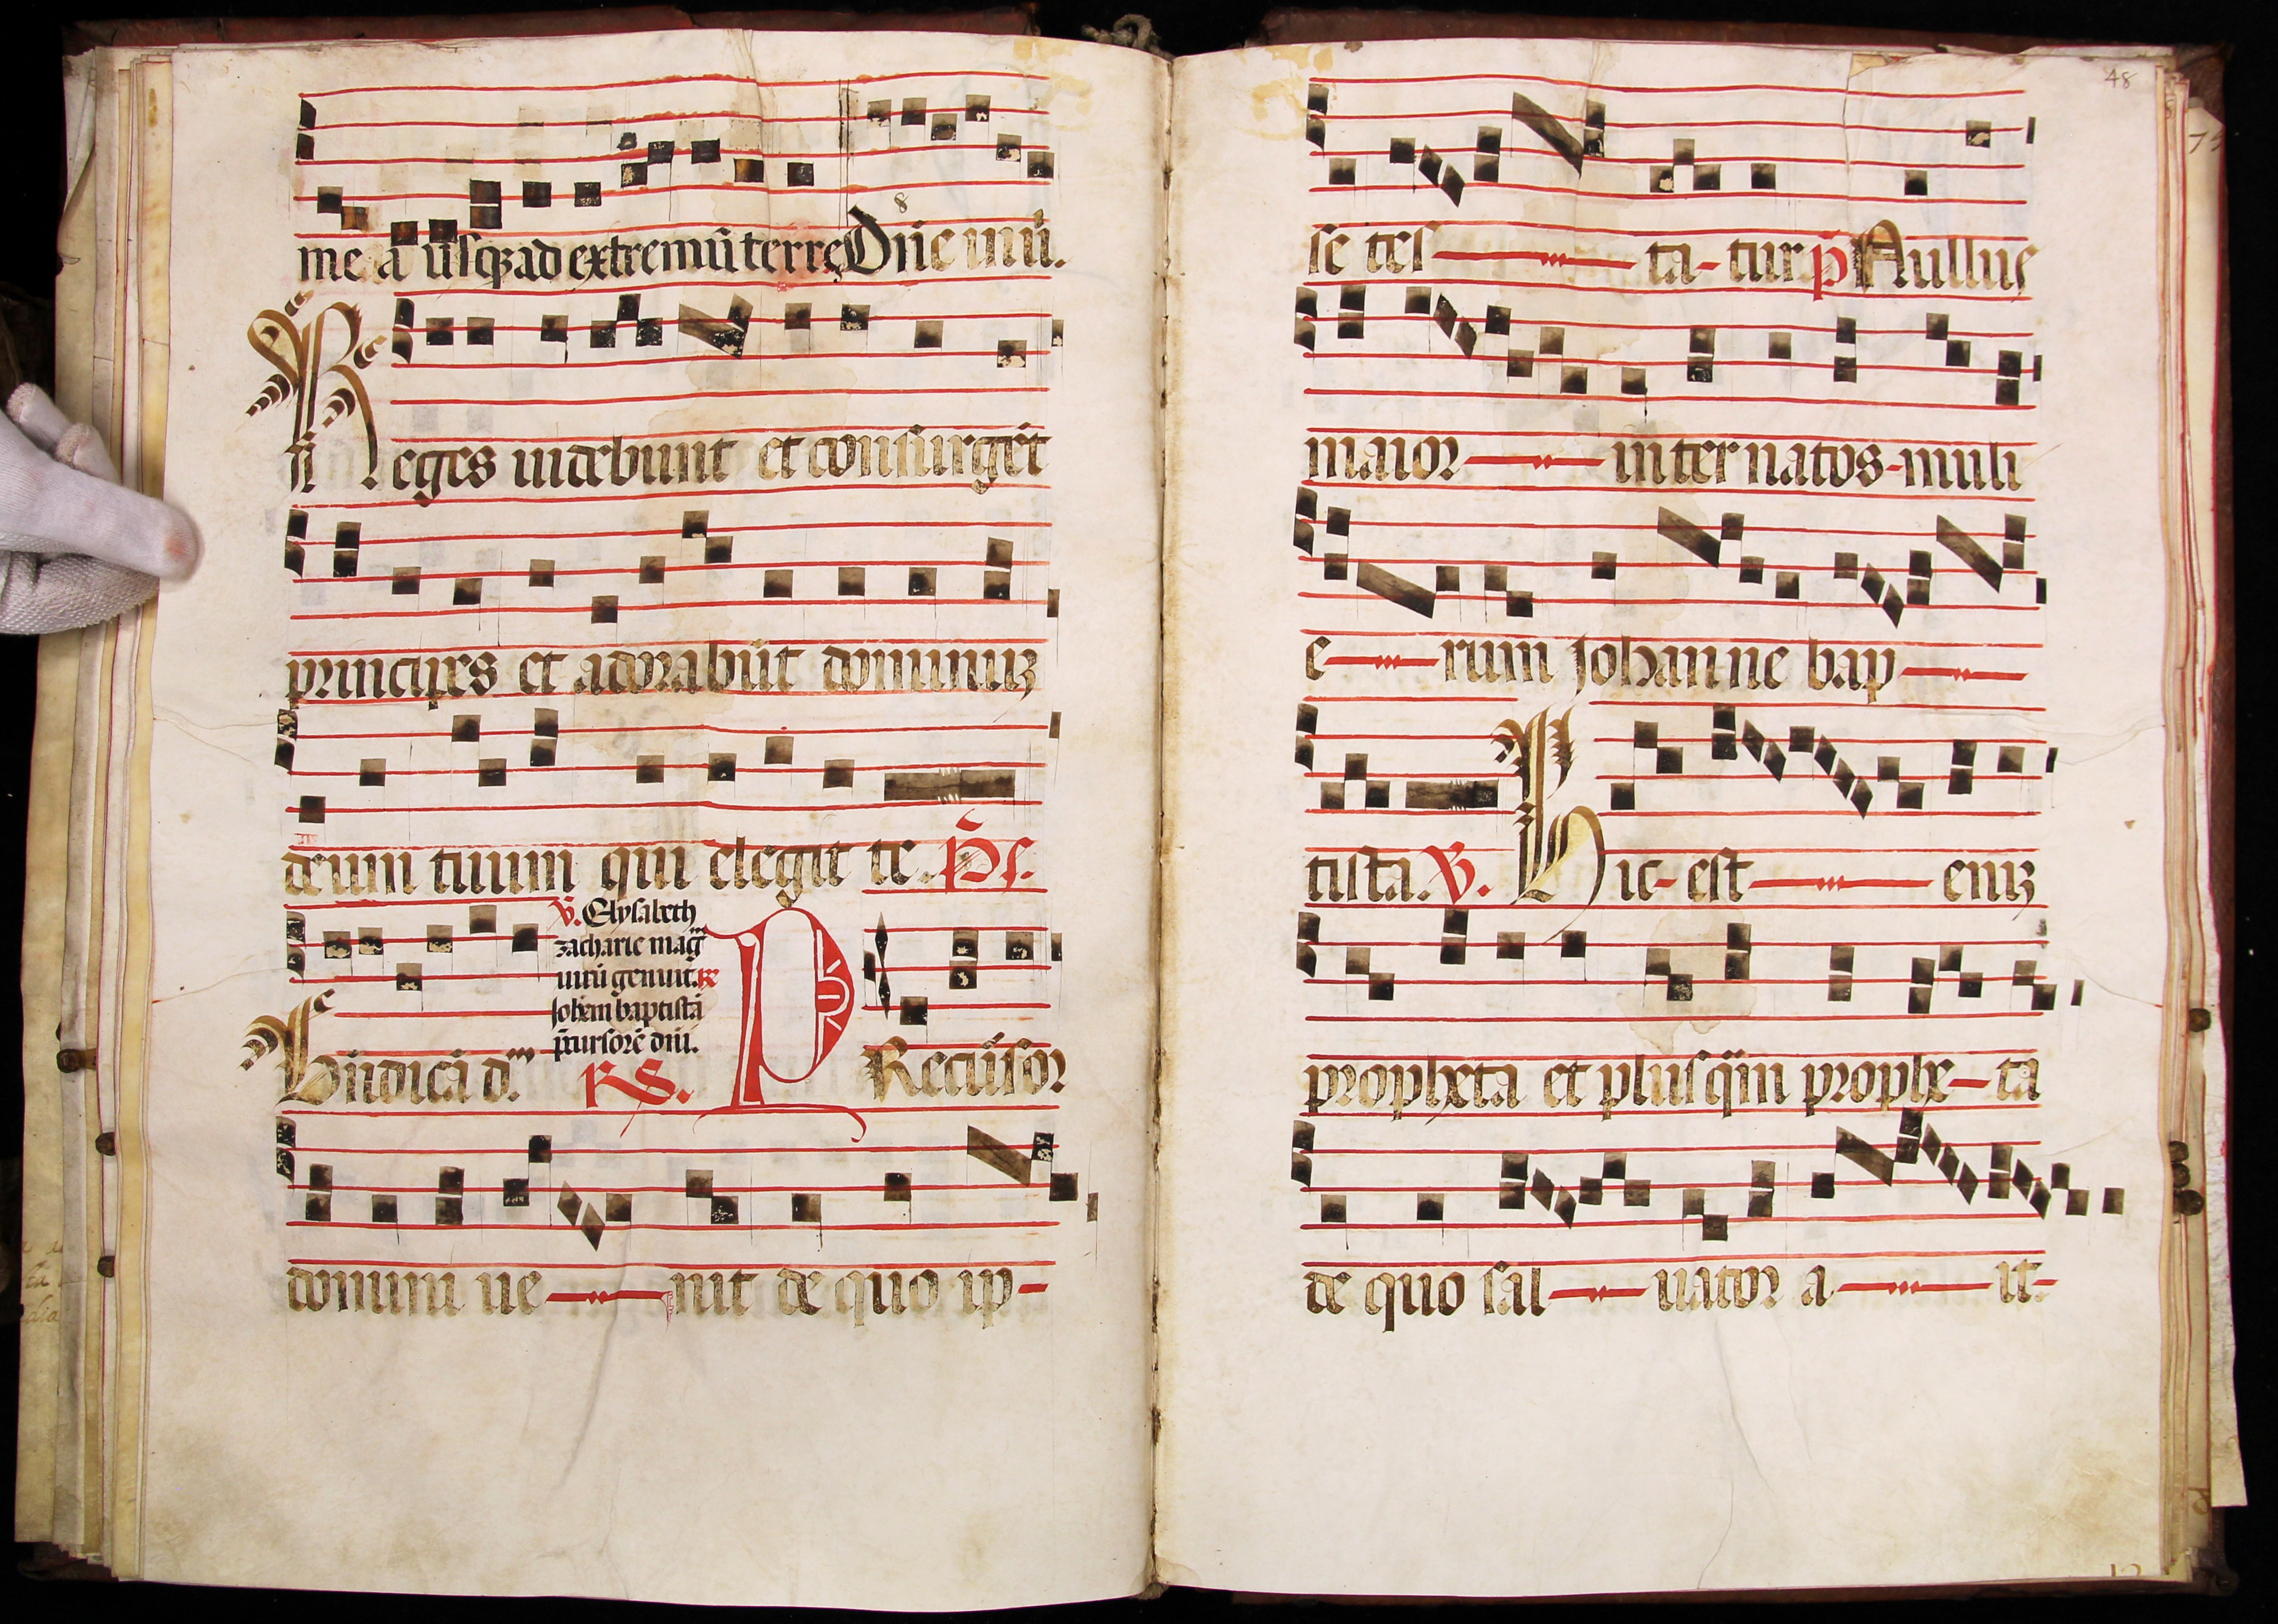 8
me a usqꝫ ad extremũ terre Dñe mũ.
Reges uidebunt et consurgẽt
principes et adorabũt dominuꝫ
deum tuum qui elegit te. Ps.
℣. Elysabeth
zacharie mag
uirũ genuit. ℟
Johem baptistã
p̃cursorẽ dñi.
Bñdicã d. RS. PRecursor
domini ue nit de quo ip-
48
se tes ta-tur p̃ Nullus
maior inter natos-muli
e rum Johanne bap
tista. ℣. Hic-est eniꝫ
propheta et plusq̃m prophe-ta
de quo sal uator a it-